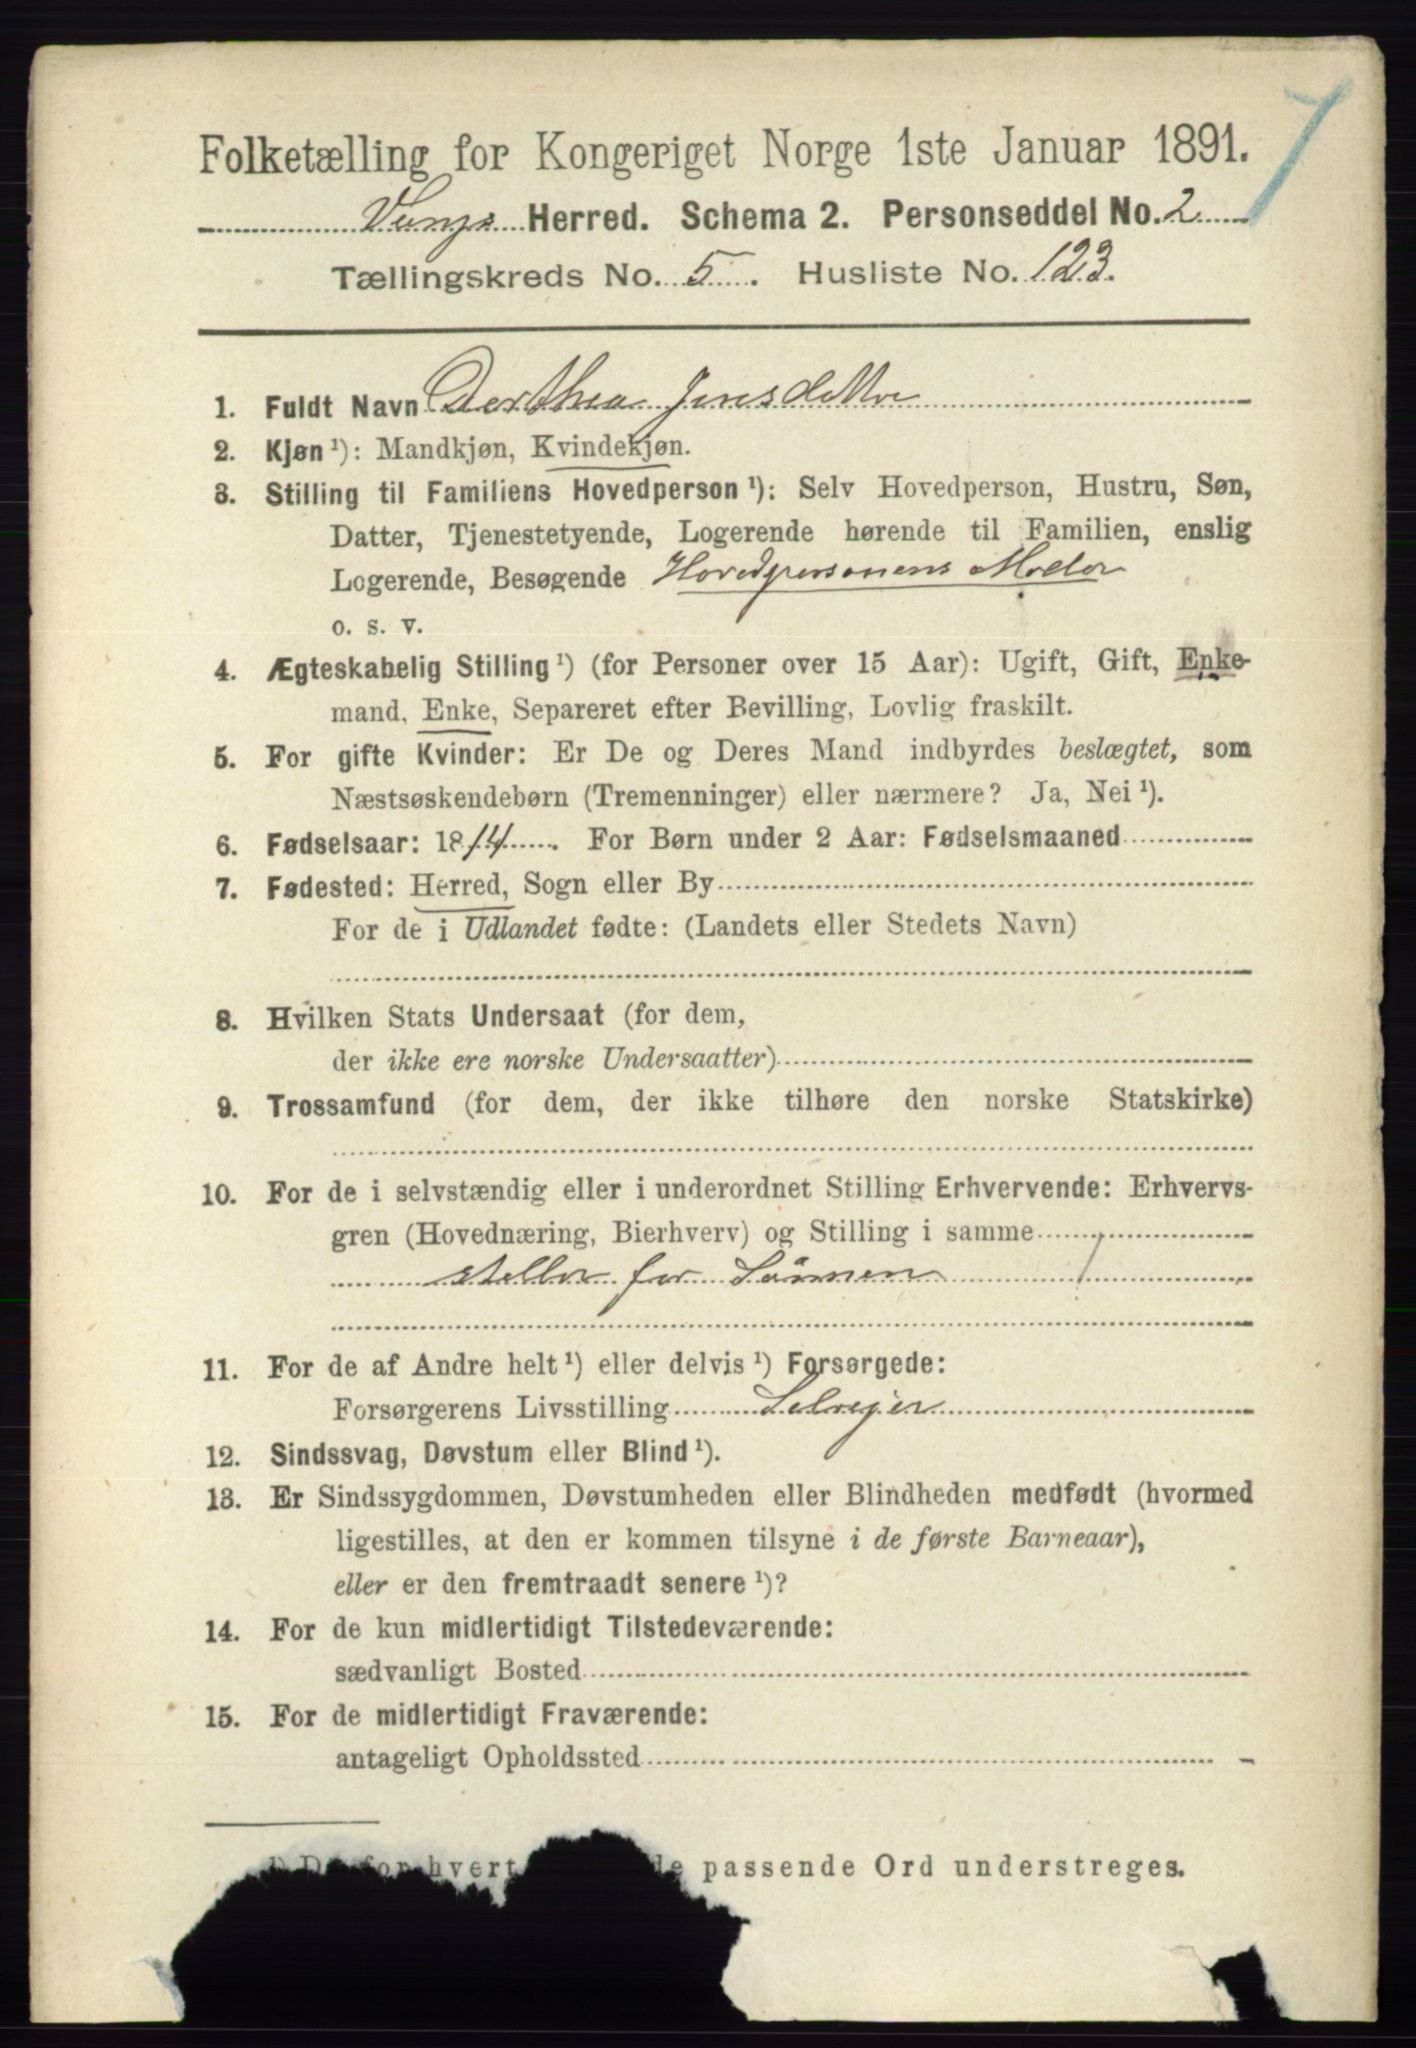 Folketælling for Kongeriget Norge 1ste Januar 1891.
Herred. Schema 2. Personseddel No. 2
Tællingskreds No. 5. Husliste No. 123.
1. Fuldt Navn Dorthea Jensdatter
2. Kjøn ¹): Mandkjøn, Kvindekjøn.
3. Stilling til Familiens Hovedperson ¹): Selv Hovedperson, Hustru, Søn,
Datter, Tjenestetyende, Logerende hørende til Familien, enslig
Logerende, Besøgende Hovedpersonens Moder
o. s. v.
4. Ægteskabelig Stilling ¹) (for Personer over 15 Aar): Ugift, Gift, Enke-
mand, Enke, Separeret efter Bevilling, Lovlig fraskilt.
5. For gifte Kvinder: Er De og Deres Mand indbyrdes beslægtet, som
Næstsøskendebørn (Tremenninger) eller nærmere? Ja, Nei ¹).
6. Fødselsaar: 1814. For Børn under 2 Aar: Fødselsmaaned
7. Fødested: Herred, Sogn eller By
For de i Udlandet fødte: (Landets eller Stedets Navn)
8. Hvilken Stats Undersaat (for dem,
der ikke ere norske Undersaatter)
9. Trossamfund (for dem, der ikke tilhøre den norske Statskirke)
10. For de i selvstændig eller i underordnet Stilling Erhvervende: Erhvervs-
gren (Hovednæring, Bierhverv) og Stilling i samme
steller for Sönnen
11. For de af Andre helt ¹) eller delvis ¹) Forsørgede:
Forsørgerens Livsstilling Selvejer
12. Sindssvag, Døvstum eller Blind ¹).
13. Er Sindssygdommen, Døvstumheden eller Blindheden medfødt (hvormed
ligestilles, at den er kommen tilsyne i de første Barneaar),
eller er den fremtraadt senere ¹)?
14. For de kun midlertidigt Tilstedeværende:
sædvanligt Bosted
15. For de midlertidigt Fraværende:
antageligt Opholdssted
for hvert de passende Ord understreges.